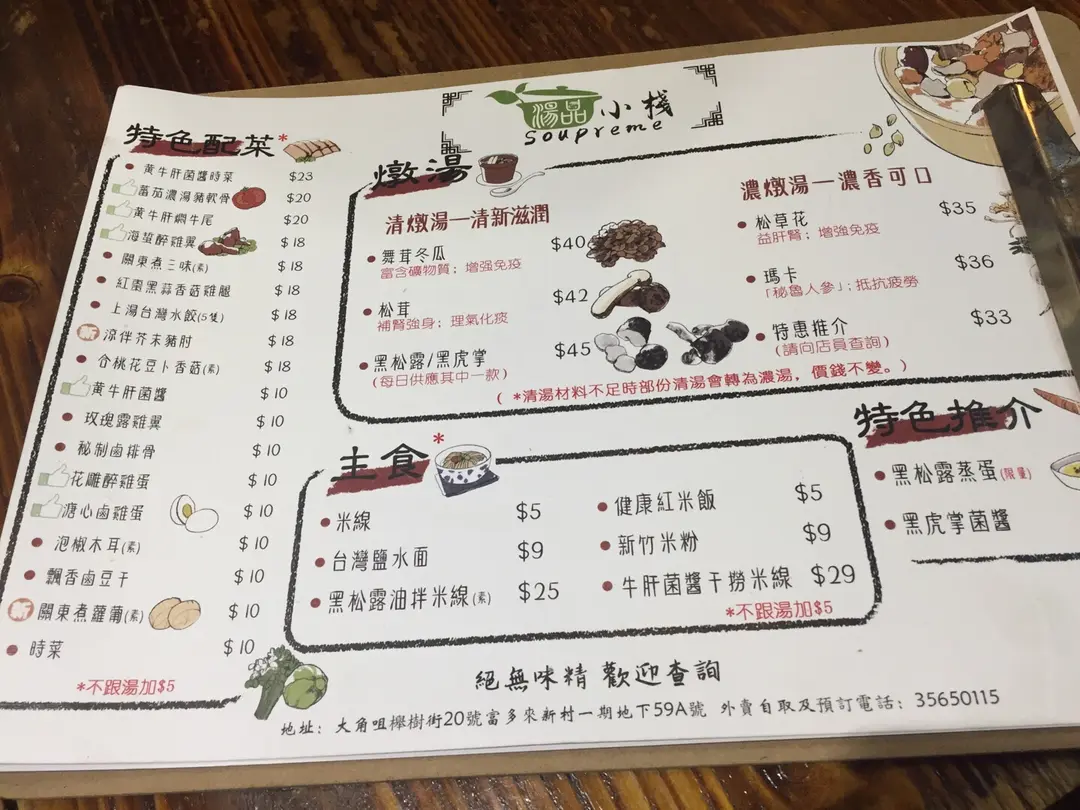 湯品小棧
Soupreme
特色配菜*
黃牛肝菌醬時菜 $23
蕃茄濃湯豬軟骨 $20
黃牛肝燜牛尾 $20
海蜇醉雞翼 $18
關東煮三味(素) $18
紅棗黑蒜香菇雞腿 $18
上湯台灣水餃(5隻) $18
新 涼伴芥末豬肘 $18
合桃花豆卜香菇(素) $18
黃牛肝菌醬 $10
玫瑰露雞翼 $10
秘制鹵排骨 $10
花雕醉雞蛋 $10
溏心鹵雞蛋 $10
泡椒木耳(素) $10
飄香鹵豆干 $10
新 關東煮蘿蔔(素) $10
時菜 $10
*不跟湯加$5
燉湯
清燉湯—清新滋潤
舞茸冬瓜 $40
富含礦物質；增强免疫
松茸 $42
補腎強身；理氣化痰
黑松露/黑虎掌 $45
(每日供應其中一款)
濃燉湯—濃香可口
松草花 $35
益肝腎；增強免疫
瑪卡 $36
「秘魯人參」；抵抗疲勞
特惠推介 $33
(請向店員查詢)
( *清湯材料不足時部份清湯會轉為濃湯，價錢不變。)
主食*
米線 $5
台灣鹽水面 $9
黑松露油拌米線(素) $25
健康紅米飯 $5
新竹米粉 $9
牛肝菌醬干撈米線 $29
*不跟湯加$5
特色推介
黑松露蒸蛋(限量)
黑虎掌菌醬
絕無味精 歡迎查詢
地址：大角咀櫸樹街20號富多來新村一期地下59A號 外賣自取及預訂電話：35650115